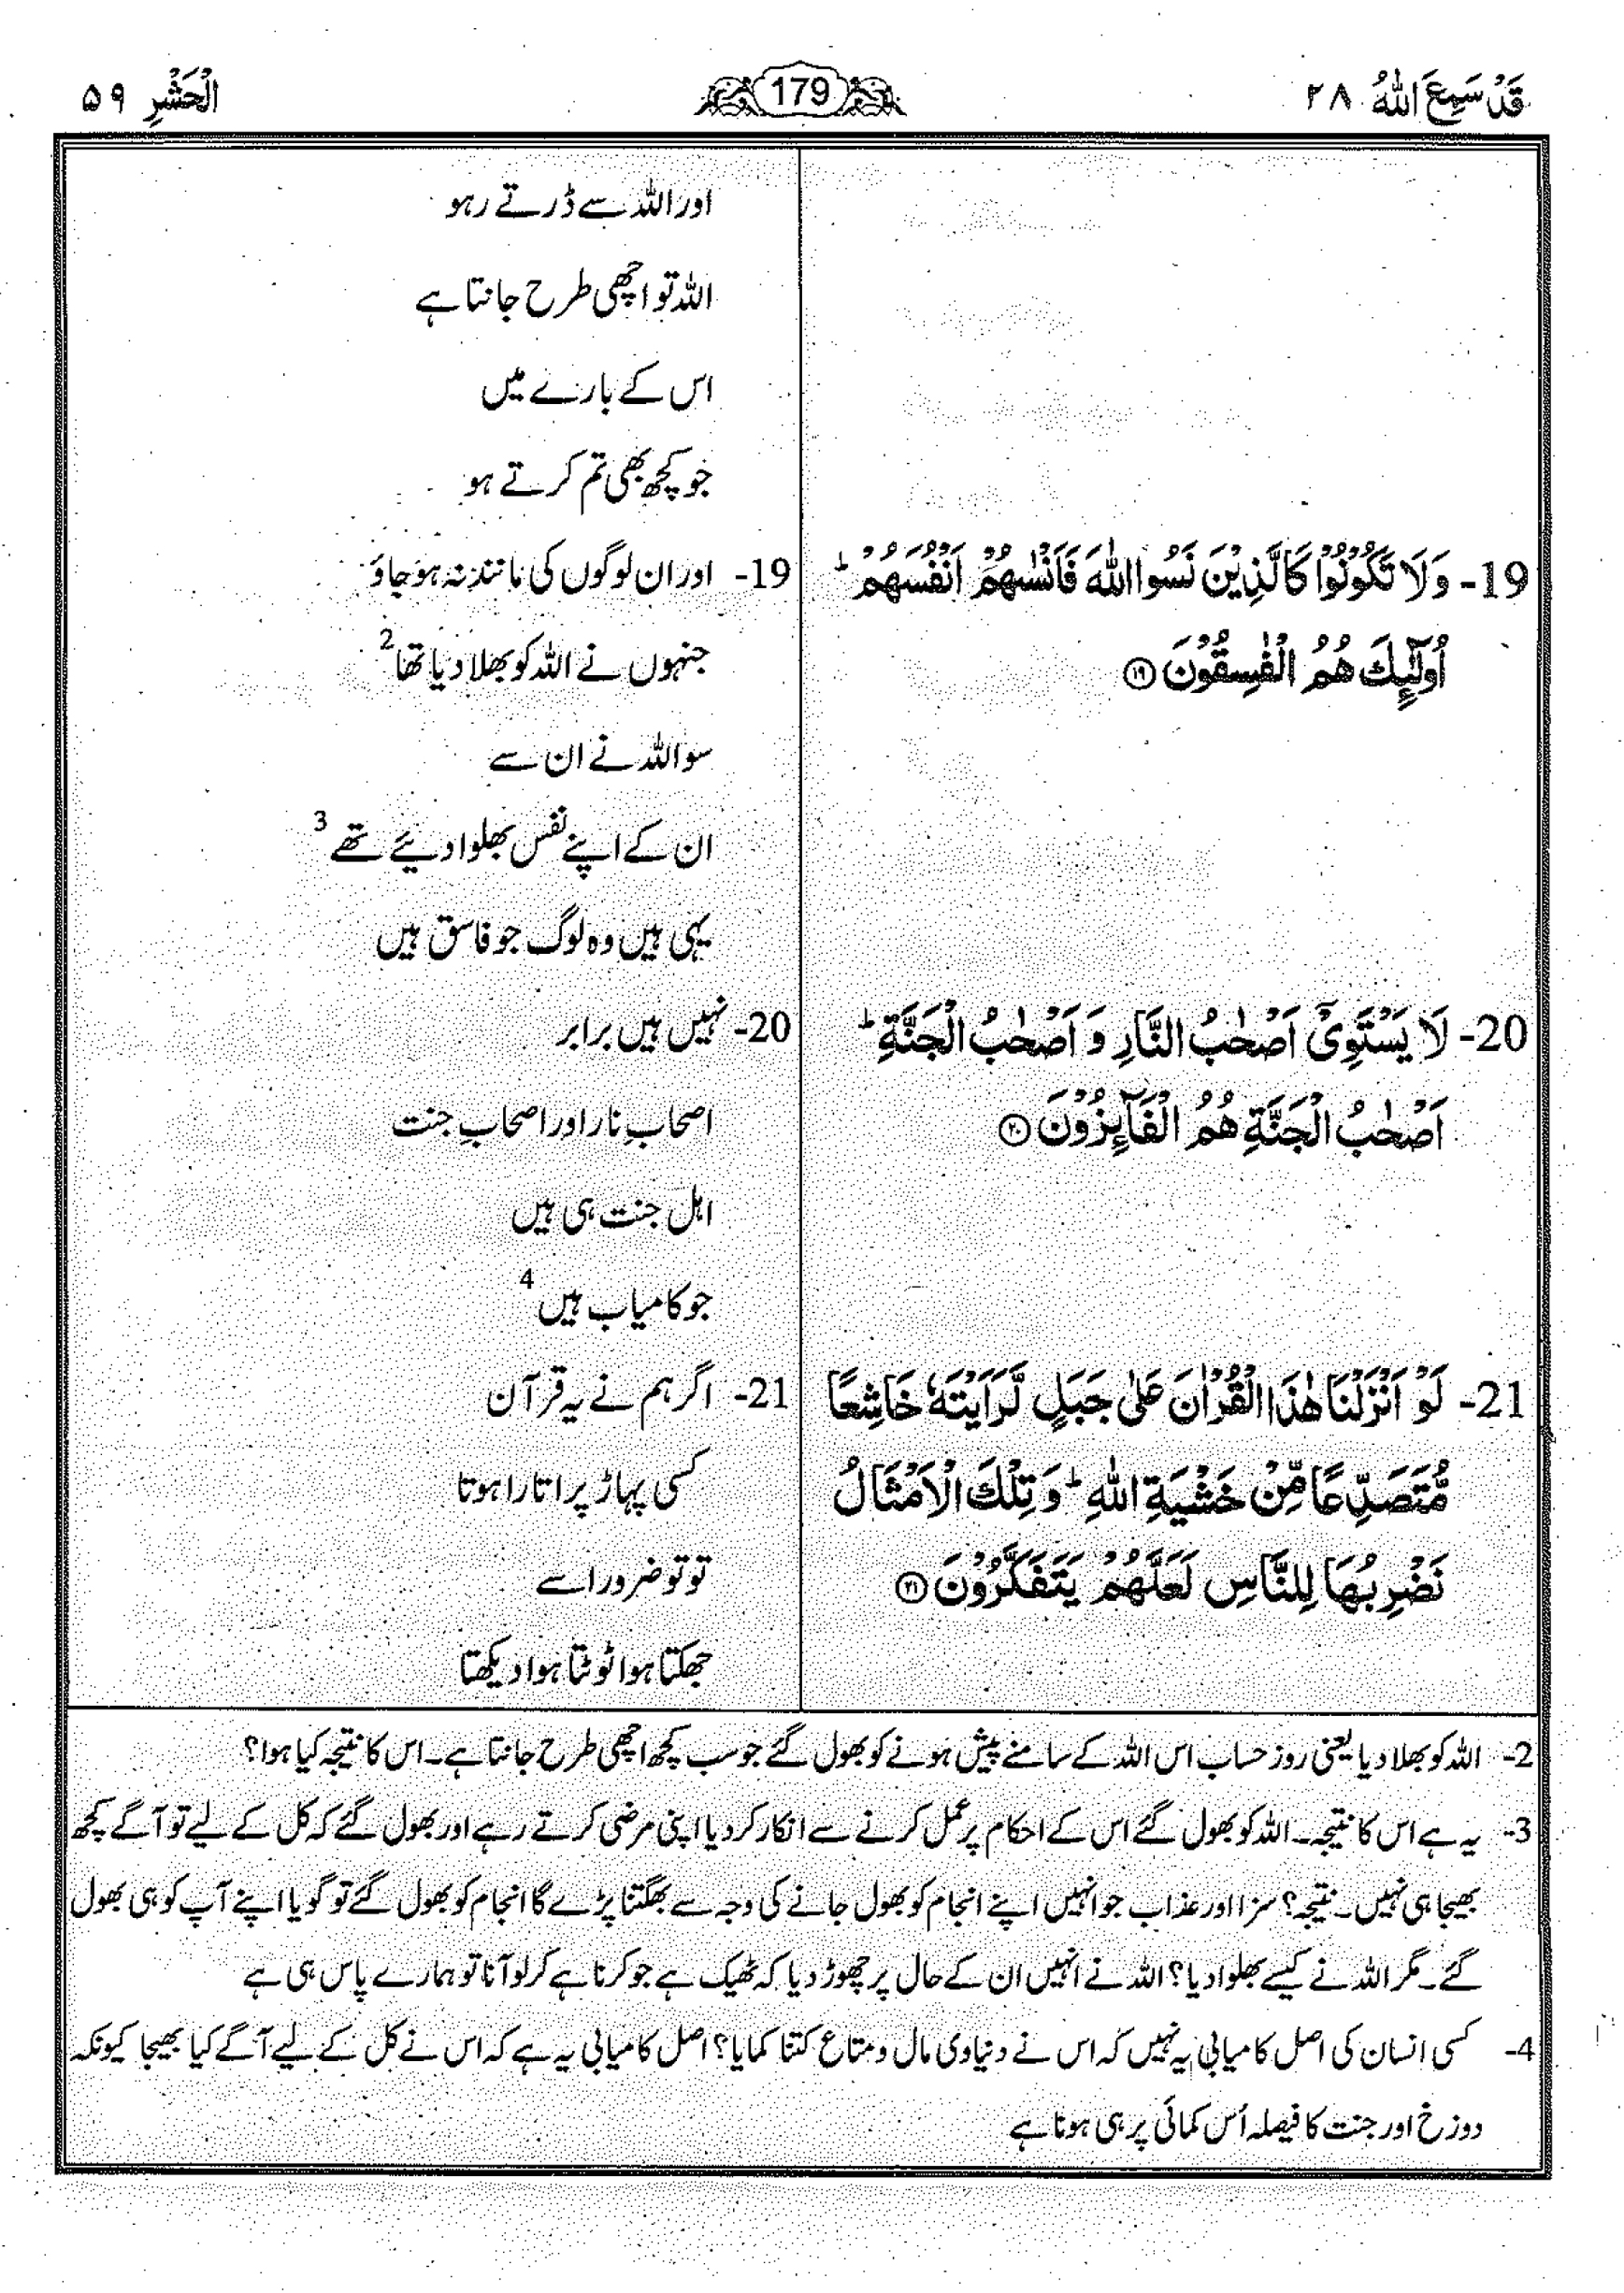 قَدْ سَمِعَ اللّٰهُ ۲۸
179
الْحَشْرِ ۵۹
اور اللہ سے ڈرتے رہو
اللہ تو اچھی طرح جانتا ہے
اس کے بارے میں
جو کچھ بھی تم کرتے ہو
19- وَلَا تَكُوْنُوْا كَالَّذِيْنَ نَسُوا اللّٰهَ فَاَنْسٰىهُمْ اَنْفُسَهُمْ ؕ
اُولٰٓئِكَ هُمُ الْفٰسِقُوْنَ ﴿۱۹﴾
19- اور ان لوگوں کی مانند نہ ہو جاؤ
جنہوں نے اللہ کو بھلا دیا تھا 2
سو اللہ نے ان سے
ان کے اپنے نفس بھلوا دیئے تھے 3
یہی ہیں وہ لوگ جو فاسق ہیں
20- لَا يَسْتَوِيْۤ اَصْحٰبُ النَّارِ وَ اَصْحٰبُ الْجَنَّةِ ؕ
اَصْحٰبُ الْجَنَّةِ هُمُ الْفَآئِزُوْنَ ﴿۲۰﴾
20- نہیں ہیں برابر
اصحابِ نار اور اصحابِ جنت
اہل جنت ہی ہیں
جو کامیاب ہیں 4
21- لَوْ اَنْزَلْنَا هٰذَا الْقُرْاٰنَ عَلٰى جَبَلٍ لَّرَاَيْتَهٗ خَاشِعًا
مُّتَصَدِّعًا مِّنْ خَشْيَةِ اللّٰهِ ؕ وَ تِلْكَ الْاَمْثَالُ
نَضْرِبُهَا لِلنَّاسِ لَعَلَّهُمْ يَتَفَكَّرُوْنَ ﴿۲۱﴾
21- اگر ہم نے یہ قرآن
کسی پہاڑ پر اتارا ہوتا
تو تو ضرور اسے
جھکتا ہوا ٹوٹتا ہوا دیکھتا
2- اللہ کو بھلا دیا یعنی روز حساب اس اللہ کے سامنے پیش ہونے کو بھول گئے جو سب کچھ اچھی طرح جانتا ہے۔ اس کا نتیجہ کیا ہوا؟
3- یہ ہے اس کا نتیجہ۔ اللہ کو بھول گئے اس کے احکام پر عمل کرنے سے انکار کر دیا اپنی مرضی کرتے رہے اور بھول گئے کہ کل کے لیے تو آگے کچھ
بھیجا ہی نہیں۔ نتیجہ؟ سزا اور عذاب جو انہیں اپنے انجام کو بھول جانے کی وجہ سے بھگتنا پڑے گا انجام کو بھول گئے تو گویا اپنے آپ کو ہی بھول
گئے۔ مگر اللہ نے کیسے بھلوا دیا؟ اللہ نے انہیں ان کے حال پر چھوڑ دیا کہ ٹھیک ہے جو کرنا ہے کر لو آنا تو ہمارے پاس ہی ہے
4- کسی انسان کی اصل کامیابی یہ نہیں کہ اس نے دنیاوی مال و متاع کتنا کمایا؟ اصل کامیابی یہ ہے کہ اس نے کل کے لیے آگے کیا بھیجا کیونکہ
دوزخ اور جنت کا فیصلہ اُس کمائی پر ہی ہونا ہے